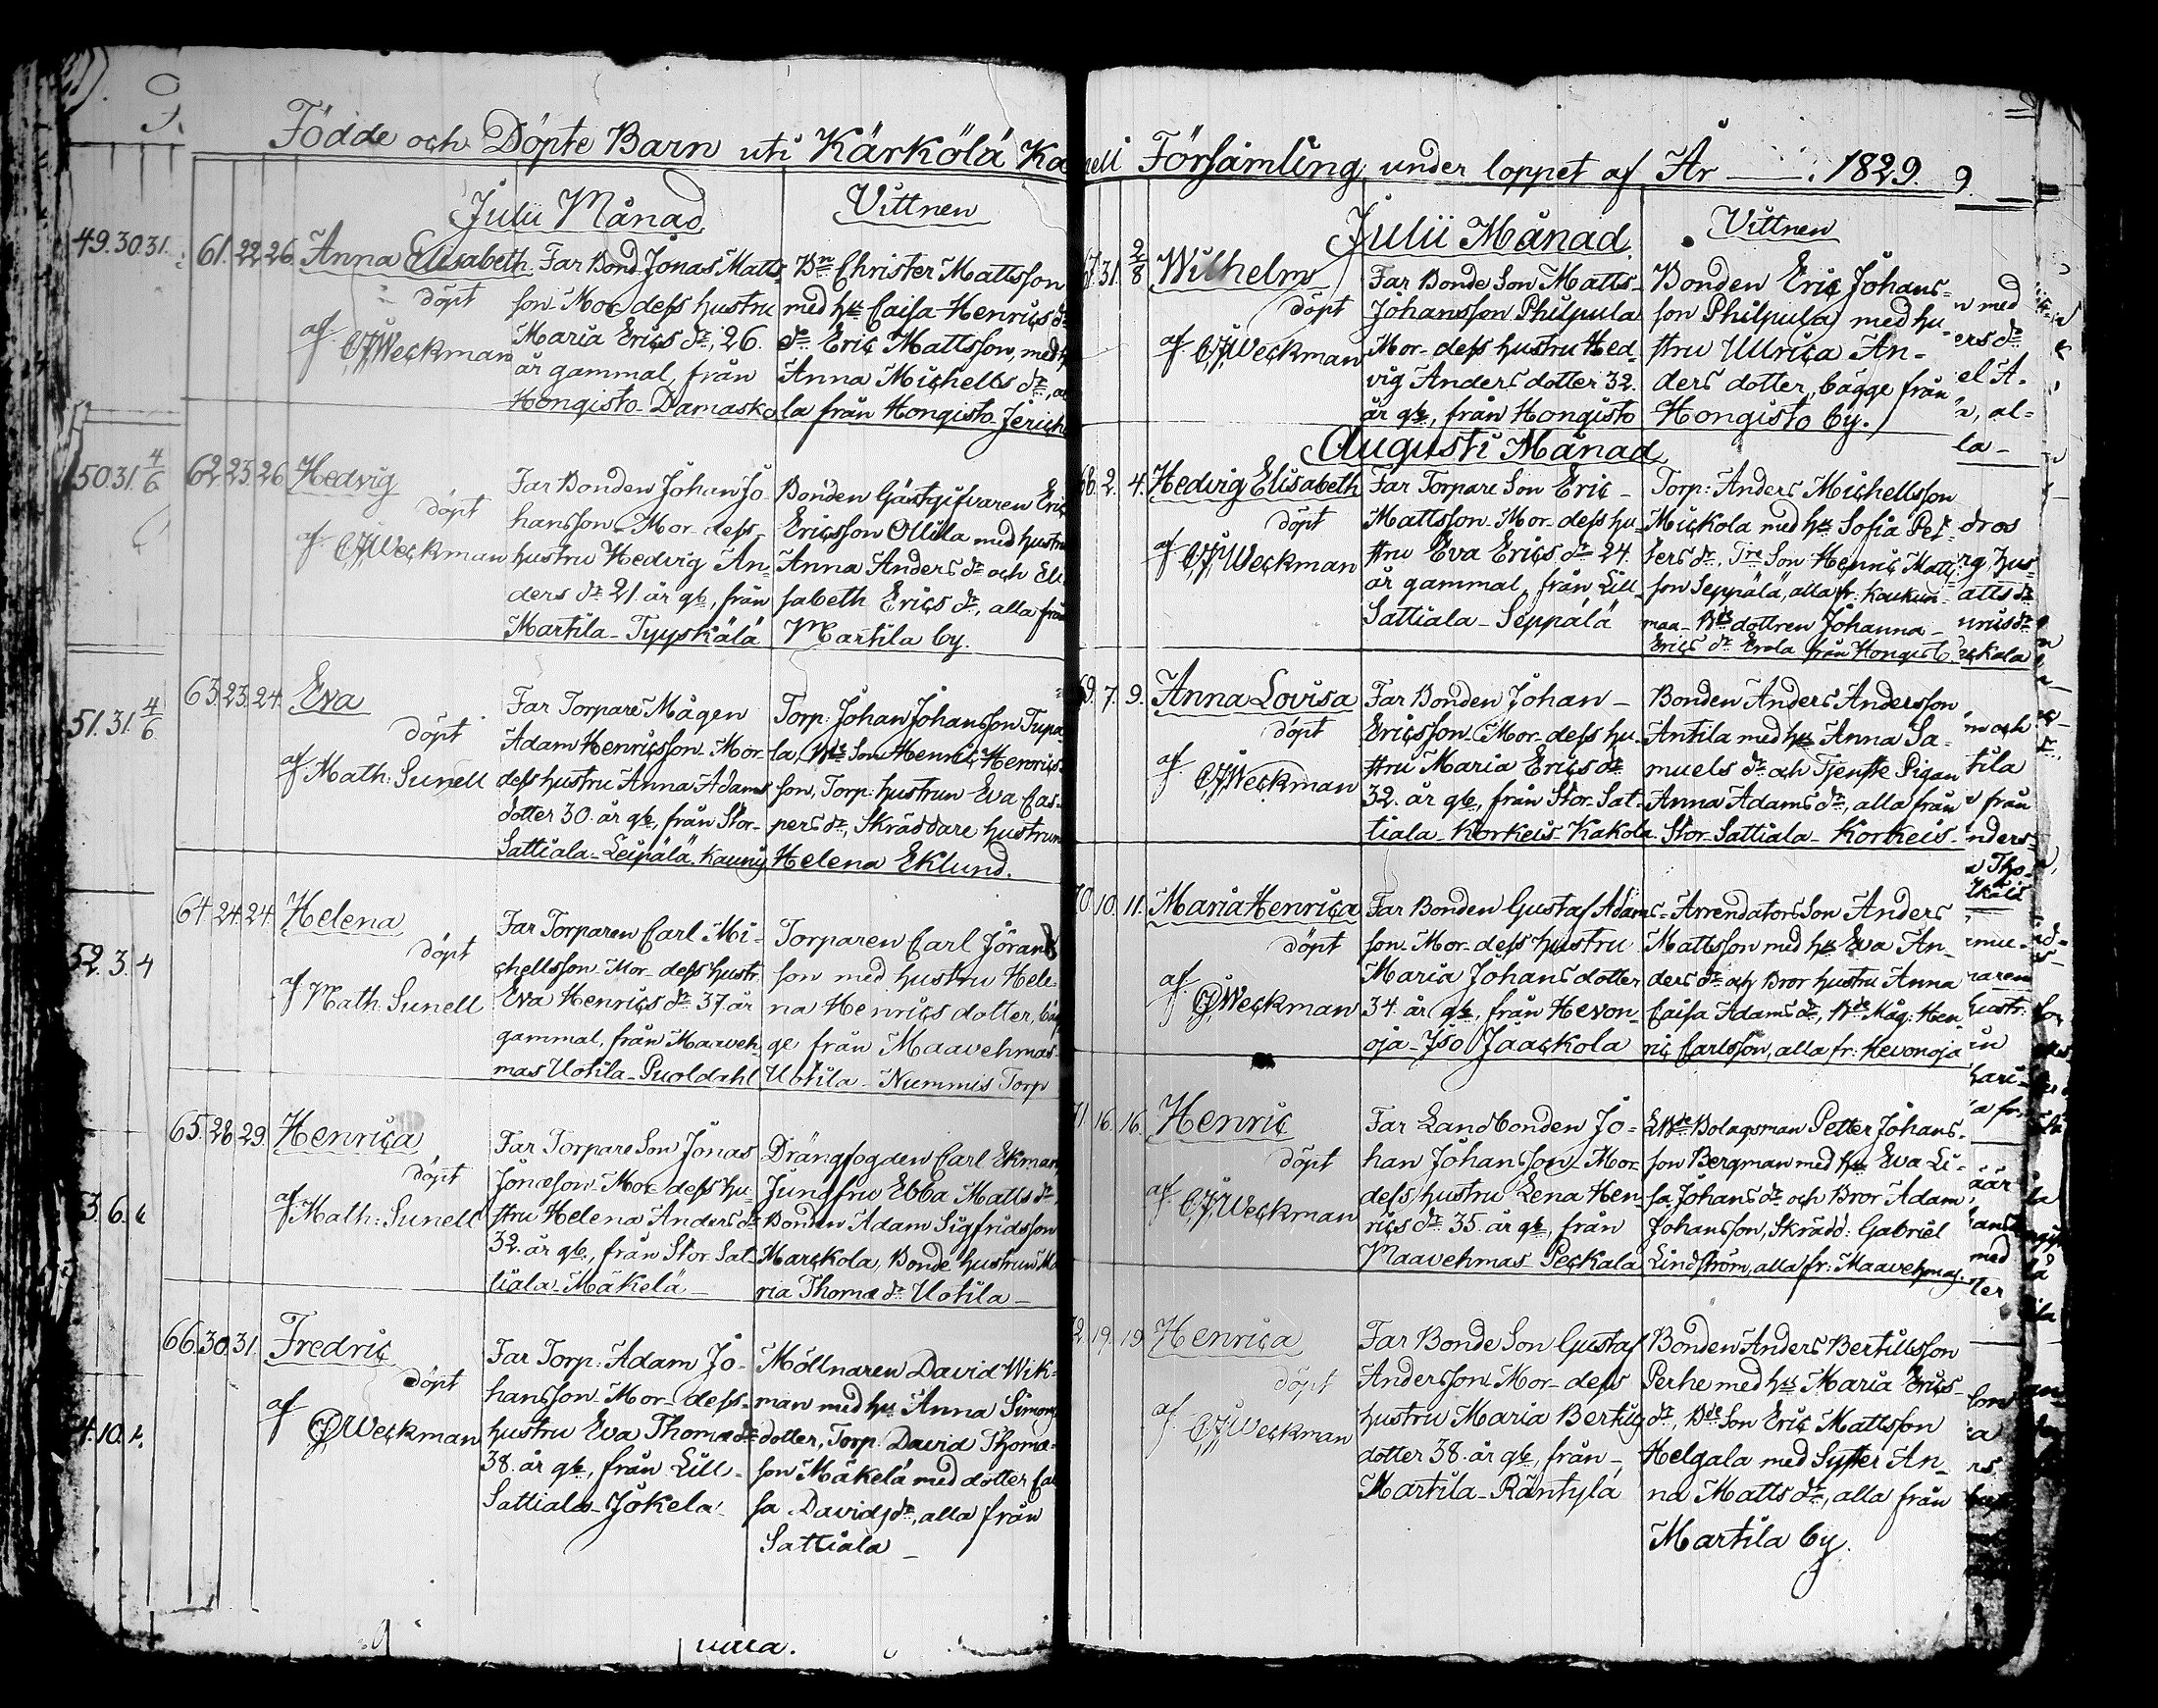 Födde och Döpte Barn uti Kärkölä Ka
Julii Månad
Vittnen
49. 30. 31.
50. 31. 4/6
51. 31. 4/6
52. 3. 4
3. 6.
4. 10.
61. 22. 26. Anna Elisabeth
döpt
af CJWeckman
Far Bond. Jonas Matts-
son. Mor- dess hustru
Maria Erics dr, 26.
år gammal, från
Hongisto- Damasko
Bn Christer Mattsson
med hu Caisa Henrics dr
dr Eric Mattsson, med
Anna Michells dr, al
la från Hongisto Jericho
62. 23. 26. Hedvig
döpt
af CJWeckman
Far Bonden Johan Jo
hansson- Mor- dess
hustru Hedvig An-
ders dr 21. år gl, från
Martila- Tyyskälä
Bonden Gästgifvaren Eric
Ericsson Ollila med hustru
Anna Anders dr och Eli
sabeth Erics dr, alla från
Martila by.
63. 23. 24. Eva
döpt
af Math: Sunell
Far Torpare Mågen
Adam Henricsson- Mor-
dess hustru Anna Adams
dotter 30. år gl, från Stor-
Sattiala- Leipälä- Kauny
Torp: Johan Johansson Tupa
la, Bde Son Henric Henrics
son, Torp: hustrun Eva Cas-
pers dr, Skräddare hustrun
Helena Eklund.
64. 24. 24. Helena
döpt
af Math: Sunell
Far Torparen Carl Mi-
chellsson. Mor- dess hustr.
Eva Henrics dr 37. år
gammal, från Maaveh-
mas Uotila- Puoldahl
Torparen Carl Jörans
son med hustru Hele-
na Henrics dotter, båg
ge från Maavehmas-
Uotila- Nummis Torp
65. 28. 29. Henrica
döpt
af Math: Sunell
Far Torpare Son Jonas
Jonæson- Mor- dess hu-
stru Helena Anders dr
32. år gl, från Stor Sat-
tiala- Mäkelä-
Drängfogden Carl Ekman
Jungfru Ebba Matts dr,
Bonden Adam Sigfridsson
Marckola, Bonde hustrun Ma
ria Thomæ dr Uotila-
66. 30. 31. Fredric
döpt
af CJWeckman
Far Torp: Adam Jo-
hansson- Mor- dess-
hustru Eva Thomæ dr
38. år gl, från Lill-
Sattiala- Jokela-
Möllnaren David Wik-
man med hu Anna Simons
dotter, Torp: David Thomæ-
son Mäkelä med dotter Cai
sa Davids dr, alla från
Sattiala-
neli Församling under loppet af År 1829.
Julii Månad.
Vittnen
67. 31. 2/8 Wilhelm
döpt
af CJWeckman
Far Bonde Son Matts-
Johansson Philpula
Mor- dess hustru Hed-
vig Anders dotter 32.
år gl, från Hongisto
Bonden Eric Johans-
son Philpula med hu-
stru Ullrica An-
ders dotter, bägge från
Hongisto by.
Augusti Månad
68. 2. 4. Hedvig Elisabeth
döpt
af CJWeckman
Far Torpare Son Eric-
Mattsson- Mor- dess hu-
stru Eva Erics dr 24.
år gammal, från Lill-
Sattiala- Seppälä
Torp: Anders Michellsson
Mickola med hu Sofia Pet-
ters dr, Tre Son Henric Matts
son Seppälä, alla fr. Koukun-
maa- Bde dottren Johanna-
Erics dr Erola från Hongisto.
69. 7. 9. Anna Lovisa
döpt
af CJWeckman
Far Bonden Johan-
Ericsson- Mor- dess hu-
stru Maria Erics dr
32. år gl, från Stor- Sat-
tiala- Korkeis- Kakola
Bonden Anders Andersson
Antila med hu Anna Sa-
muels dr och Tjenste Pigan
Anna Adams dr, alla från
Stor- Sattiala- Korkeis-
70. 10. 11. Maria Henrica
döpt
af CJWeckman
Far Bonden Gustaf Adams-
son- Mor- dess hustru
Maria Johans dotter
34. år gl, från Hevon-
oja- Iso Jaackola
Arrendators Son Anders
Mattsson med hu Eva An-
ders dr och Bror hustru Anna
Caisa Adams dr, Bde Måg: Hen-
ric Carlsson, alla fr: Hevonoja
71. 16. 16. Henric
döpt
af CJWeckman
Far Landbonden Jo-
han Johansson- Mor-
dess hustru Lena Hen-
rics dr 35. år gl, från
Maavehmas- Peckala
Bolagsman Petter Johans-
son Bergman med hu Eva Li-
sa Johans dr och Bror Adam
Johansson, Skrädd: Gabriel
Lindström, alla fr: Maavehmas.
72. 19. 19. Henrica
döpt
af CJWeckman
Far Bonde Son Gustaf
Andersson Mor- dess
hustru Maria Bertils
dotter 38. år gl, från-
Martila- Räntylä
Bonden Anders Bertillsson
Perhe med hu Maria Erics-
dr, Bde Son Eric Mattsson
Helgala med Syster An-
na Matts dr, alla från
Martila by.